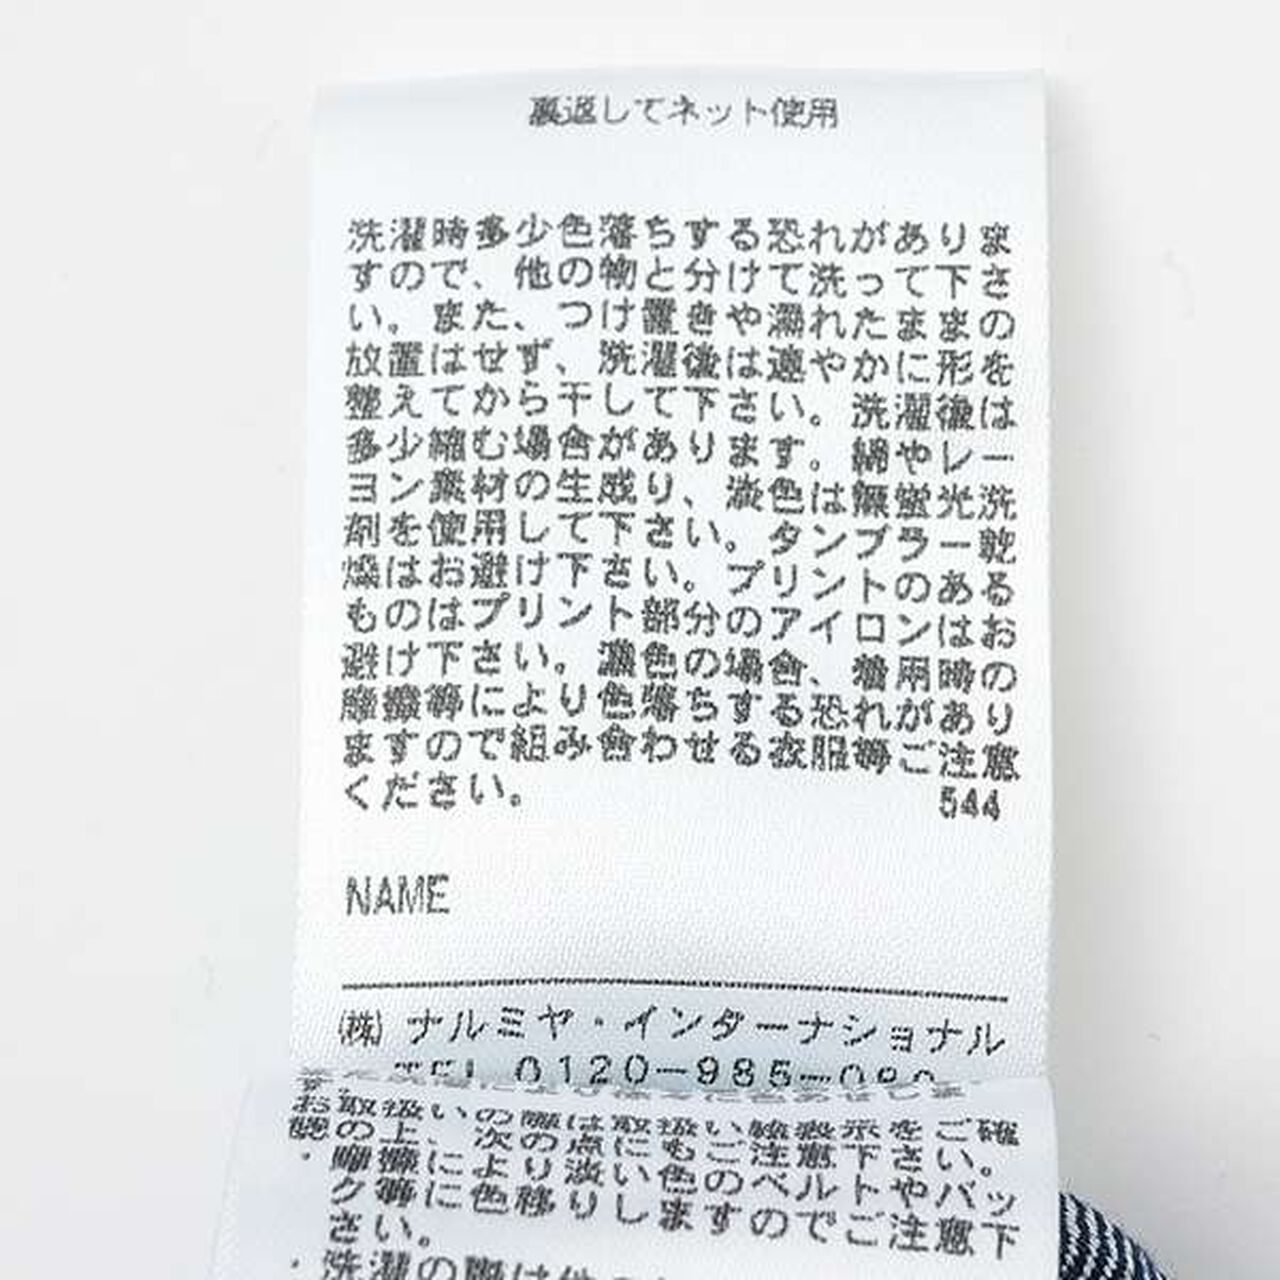 裏返してネット使用
洗濯時多少色落ちする恐れがありま
すので、他の物と分けて洗って下さ
い。また、つけ置きや濡れたままの
放置はせず、洗濯後は速やかに形を
整えてから干して下さい。洗濯後は
多少縮む場合があります。綿やレー
ヨン素材の生成り、淡色は無蛍光洗
剤を使用して下さい。タンブラー乾
燥はお避け下さい。プリントのある
ものはプリント部分のアイロンはお
避け下さい。濃色の場合、着用時の
摩擦等により色落ちする恐れがあり
ますので組み合わせる衣服等ご注意
ください。 544
NAME
(株) ナルミヤ・インターナショナル
TEL 0120-985-080
お取扱いの際は取扱い絵表示をご確
認の上、次の点にもご注意下さい。
・摩擦により淡い色のベルトやバッ
グ等に色移りしますのでご注意下
さい。
・洗濯の際は他の